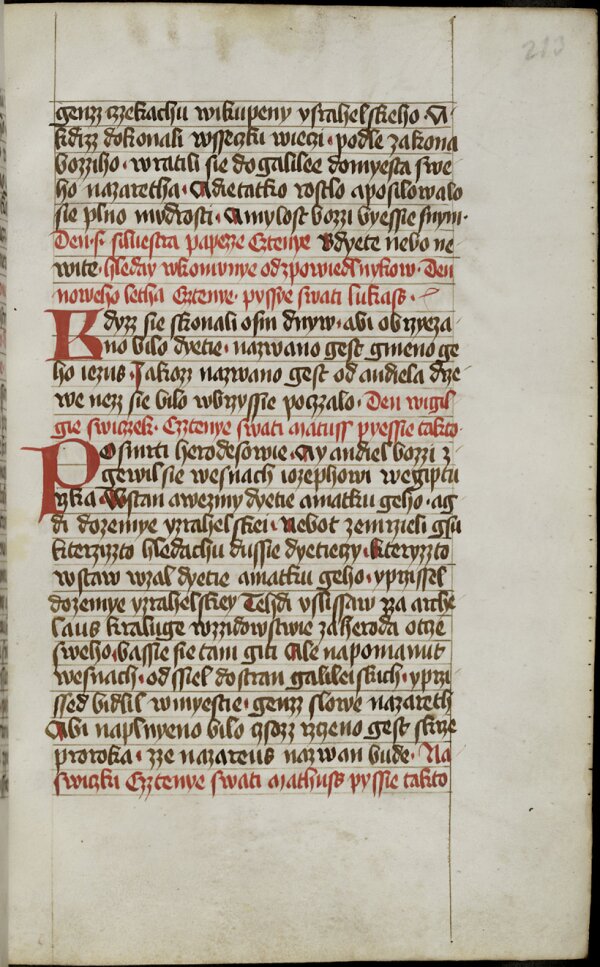 213
genzz czekachu wikupeny ysrahelskeho · A
kdizz dokonali wsseczku wieczi · podle zakona
bozziho · wratili sie do galilee do myesta swe
ho nazaretha · A dietatko rostlo a posilowalo
sie plno mudrosti · A mylost bozzi byessie snym ·
Den · s · siluestra papezze Cztenye Bdyete nebo ne
wite · hleday wkomunye odzpowiedlnykow · Den
noweho letha Cztenye · pyssye swati lukass ·
Kdyzz sie skonali osm dnyw · abi obrzyeza
no bilo dyetie · nazwano gest gmeno ge
ho iezus · Jakozz nazwano gest od andiela drze
we nezz sie bilo wbrzyssie poczalo · Den wigil
gie swiczek · Cztenye swati matuss pyessie takto
Po smrti herodesowie · Ay andiel bozzi z
gewil sie wesnach iozephowi wegiptu
rzka · Wstan a wezmy dyetie a matku geho · a g
di dozemye yzrahelskei · Nebot zemrzieli gsu
kterzizzto hledachu dussie dyetieczy · kteryzzto
wstaw wzal dyetie a matku geho · y przissel
dozemye yzrahelskey Tehdi uslissaw zza arche
laus kraluge wzzidowstwie za heroda otcze
sweho · bassie sie tam giti Ale napomanut
wesnach · odssiel do stran galileiskich · y przi
ssed bidlil wmyestie · genzz slowe nazareth
Abi naplnyeno bilo czsozz rzczeno gest skrze
proroka · zze nazareus nazwan bude · Na
swiczki Czztenye swati mathuss pyssie takto